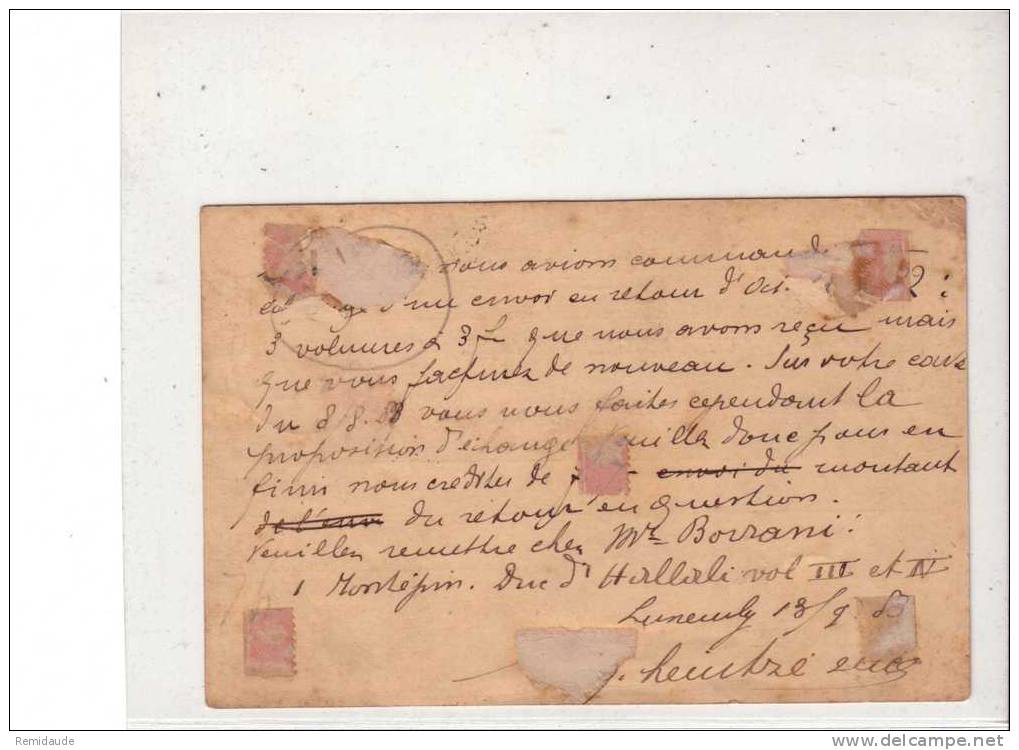 nous avions command
d'un envoi en retour d'Oct. 82 :
3 volumes à 3 f que nous avons reçu mais
que vous facturez de nouveau. Sur votre carte
du 8/8. 83 vous nous faites cependant la
proposition d'échange Veuillez donc pour en
finir nous créditer de envoi du montant
de l'envoi du retour en question.
Veuillez remettre chez Mr Borrani :
1 Montépin. Duc d' Hallali vol III et IV
13/9. 83
Remidaude
www.delcampe.net